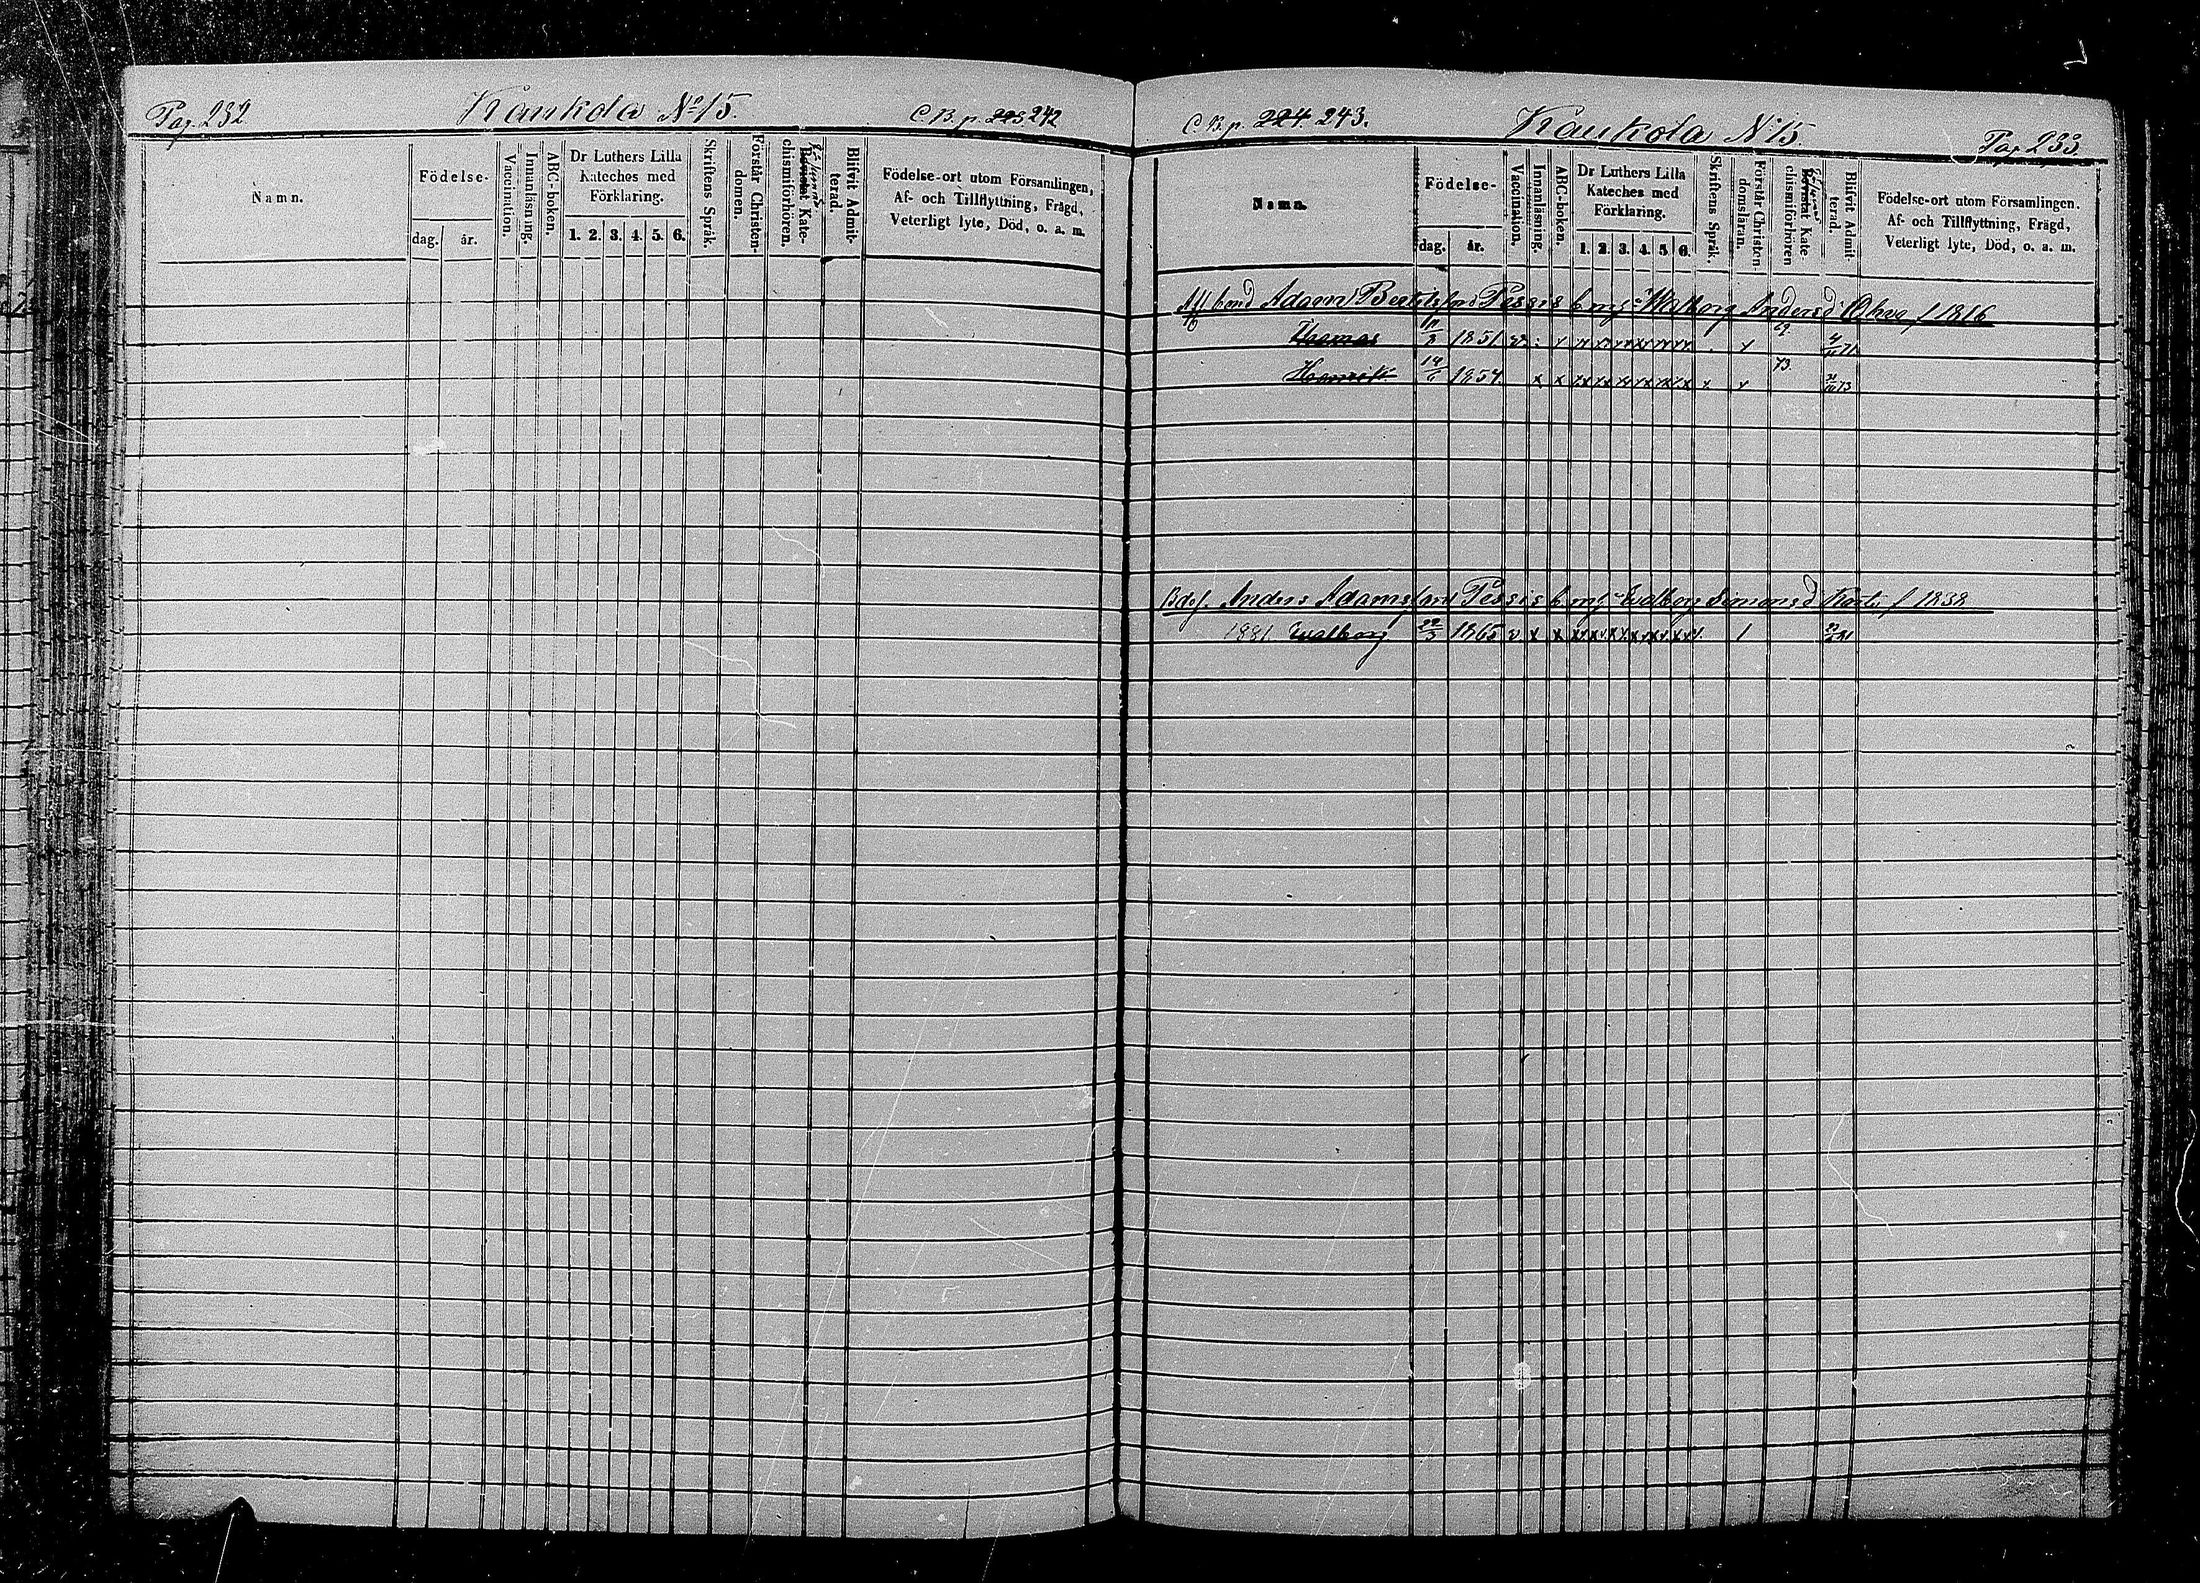 Pag. 232 Kaukola No 15. C.B.p. 223 242
Namn.
Födelse-
dag. år.
Vaccination.
Innanläsning.
ABC-boken.
Dr Luthers Lilla
Kateches med
Förklaring.
1. 2. 3. 4. 5. 6.
Skriftens Språk.
Förstår Christen-
domen.
Bevistat Kate-
chismiförhören.
Blifvit Admit-
terad.
Födelse-ort utom Församlingen,
Af- och Tillflyttning, Frägd,
Veterligt lyte, Död, o. a. m.
C.B.p. 224. 243. Kaukola No 15. Pag. 233.
Namn.
Födelse-
dag. år.
Vaccination.
Innanläsning.
ABC-boken.
Dr Luthers Lilla
Kateches med
Förklaring.
1. 2. 3. 4. 5. 6.
Skriftens Språk.
Förstår Christen-
domsläran.
Bevistat Kate
chismiförhören
Blifvit Admit-
terad.
Födelse-ort utom Församlingen.
Af- och Tillflyttning, Frägd,
Veterligt lyte, Död, o. a. m.
Adam Bertilsson Pessis Walborg Andersd. f 1816
Thomas 1851 v. x 69.
Henrik 1854. x x x x 73.
Anders Adamsson Pessis Walborg Simonsd f 1838
1881 Walborg 22/3 1865 v x x 1